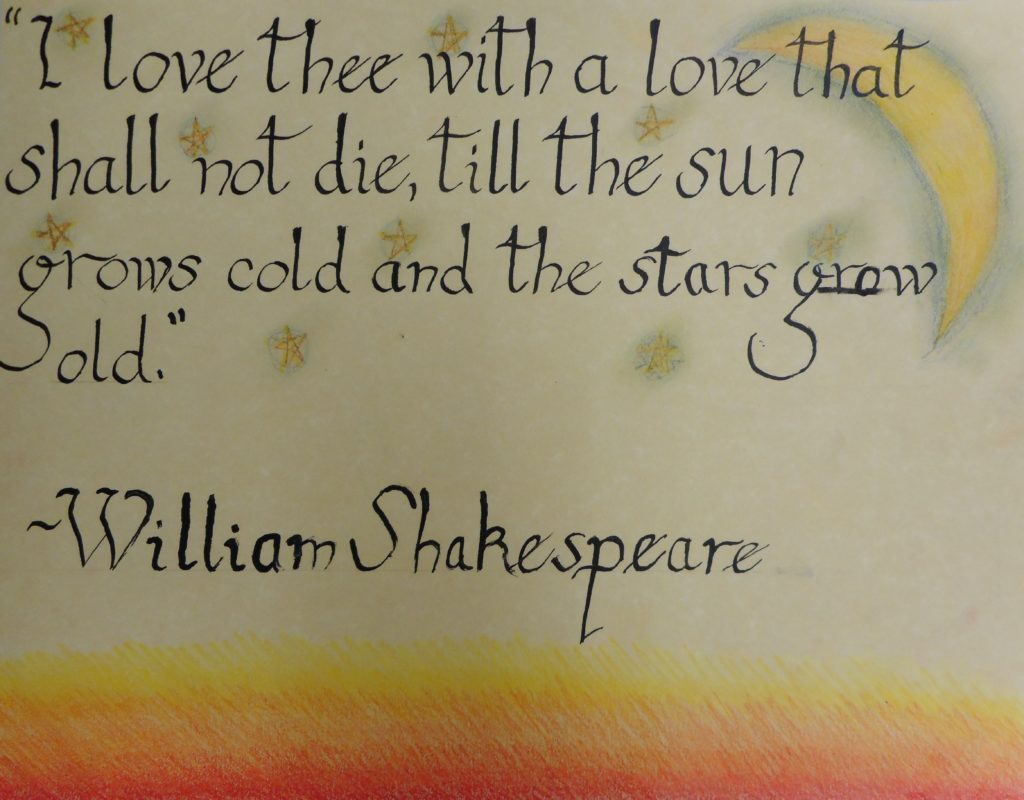 "I love thee with a love that
shall not die, till the sun
grows cold and the stars grow
old."
~William Shakespeare